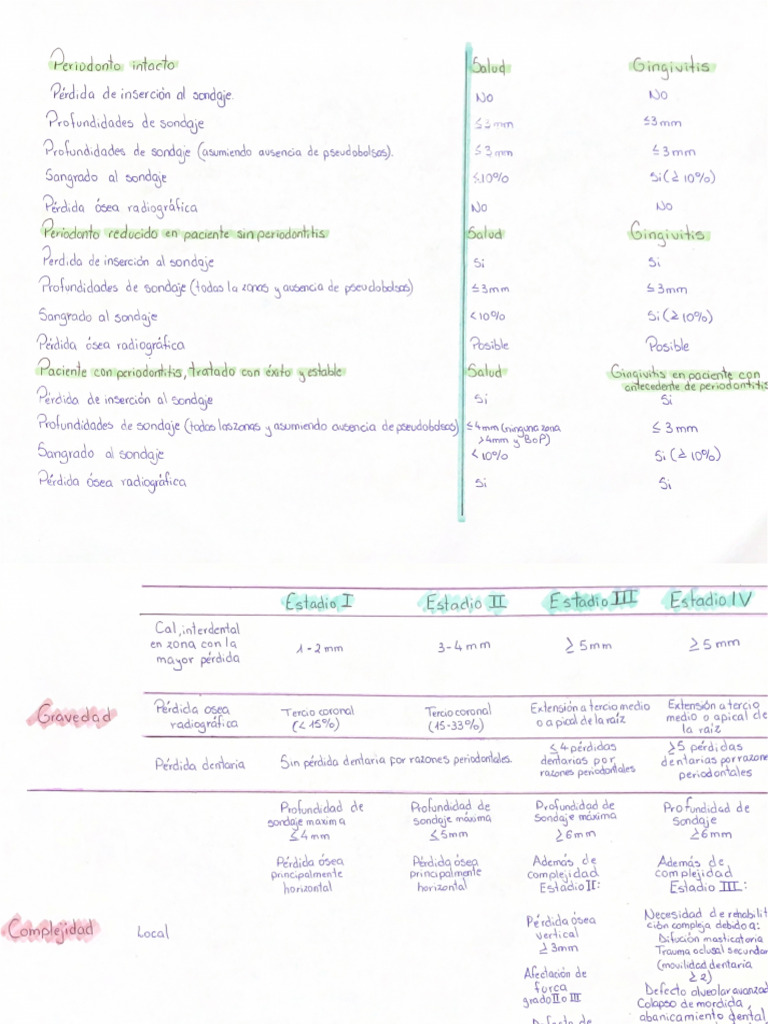 Periodonto intacto Salud Gingivitis
Pérdida de inserción al sondaje. No No
Profundidades de sondaje ≤3mm ≤3mm
Profundidades de sondaje (asumiendo ausencia de pseudobolsas). ≤3mm ≤3mm
Sangrado al sondaje ≤10% Si(≥10%)
Pérdida ósea radiográfica No No
Periodonto reducido en paciente sin periodontitis Salud Gingivitis
Perdida de inserción al sondaje Si Si
Profundidades de sondaje (todas la zonas y ausencia de pseudobolsas) ≤3mm ≤3mm
Sangrado al sondaje <10% Si(≥10%)
Pérdida ósea radiográfica Posible Posible
Paciente con periodontitis, tratado con éxito y estable Salud Gingivitis en paciente con
antecedente de periodontitis
Pérdida de inserción al sondaje Si Si
Profundidades de sondaje (todas las zonas y asumiendo ausencia de pseudobolsas) ≤4mm (ninguna zona ≤3mm
>4mm y BoP)
Sangrado al sondaje <10% Si(≥10%)
Pérdida ósea radiográfica Si Si
Estadio I Estadio II Estadio III Estadio IV
Cal, interdental
en zona con la
mayor pérdida
1-2mm 3-4mm ≥5mm ≥5mm
Gravedad
Pérdida osea
radiográfica
Tercio coronal
(<15%)
Tercio coronal
(15-33%)
Extensión a tercio medio
o a apical de la raíz
Extensión a tercio
medio o apical de
la raíz
Pérdida dentaria
Sin pérdida dentaria por razones periodontales.
≤4 pérdidas
dentarias por
razones periodontales
≥5 pérdidas
dentarias por razone
periodontales
Complejidad
Local
Profundidad de
sondaje maxima
≤4mm
Pérdida ósea
principalmente
horizontal
Profundidad de
sondaje máxima
≤5mm
Pérdida ósea
principalmente
horizontal
Profundidad de
Sondaje máxima
≥6mm
Además de
complejidad
Estadio II:
Pérdida ósea
vertical
≥3mm
Afectación de
furca
grado II o III
Defecto de
Profundidad de
Sondaje
≥6mm
Además de
complejidad
Estadio III:
Necesidad de rehabilit
ción compleja debido a:
Difución masticatoria
Trauma oclusal secundar
(movilidad dentaria
≥2)
Defecto alveolar avanzad
Colapso de mordida,
abanicamiento dental,